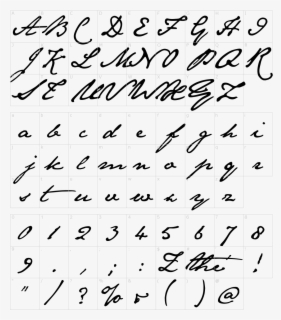 A B C D E F G H I
J K L M N O P Q R
S T U V W X Y Z
a b c d e f g h i
j k l m n o p q r
s t u v w x y z
0 1 2 3 4 5 6 7 8
9 . , ; : !
" / ? % & ( ) @